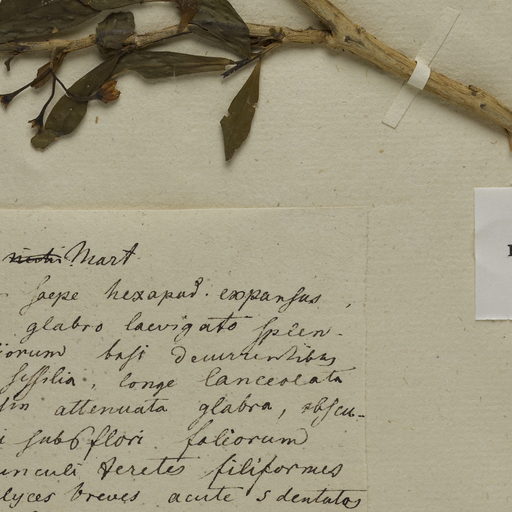 Mart
saepe hexapod. expansus,
glabro laevigato splen-
iorum basi decurrentibus
sessilia, longe lanceolata
attenuata glabra, obscu-
i sub 6 flori foliorum
unculi teretes filiformes
lyces breves acute 5 dentatos